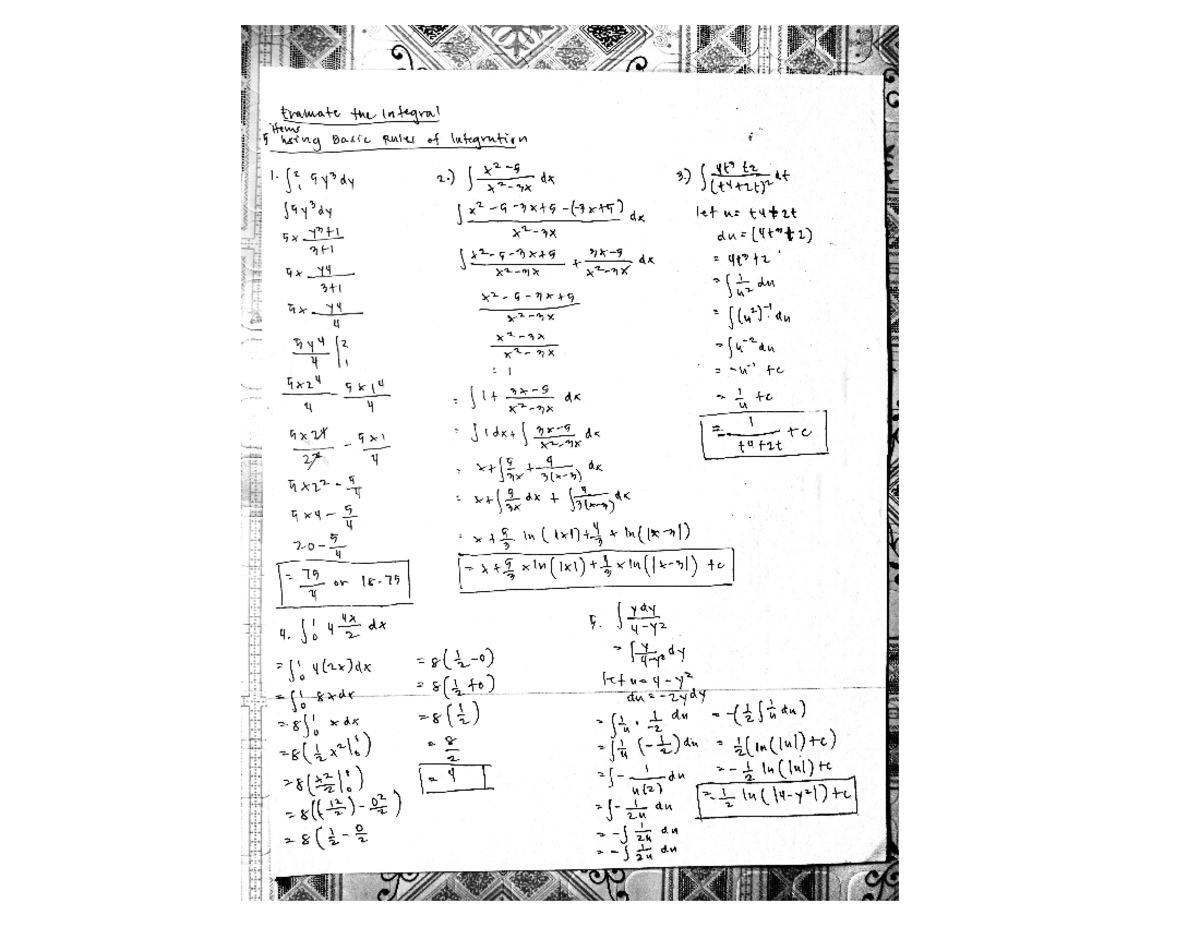 Evaluate the Integral
5 items using Basic Rules of Integration
1. ∫₁² 5y³dy
∫5y³dy
5x y³+1 / 3+1
5x y4 / 3+1
5x y4 / 4
5y4 / 4 |₁²
5x2⁴ / 4 - 5x1⁴ / 4
5x2⁴ / 2² - 5x1 / 4
5x2² - 5/4
5x4 - 5/4
20 - 5/4
= 75/4 or 18.75
2.) ∫ x²-5 / x²-3x dx
∫ x²-5-3x+5-(-3x+5) / x²-3x dx
∫ x²-5-3x+5 / x²-3x + 3x-5 / x²-3x dx
x²-5-3x+5 / x²-3x
x²-3x / x²-3x
= 1
= ∫1+ 3x-5 / x²-3x dx
= ∫1dx+∫ 3x-5 / x²-3x dx
= x+∫ 5/3x + 4/3(x-3) dx
= x+∫ 5/3x dx + ∫ 4/3(x-3) dx
= x + 5/3 ln(|x|) + 4/3 x ln(|x-3|)
= x + 5/3 x ln(|x|) + 4/3 x ln(|x-3|) +c
3.) ∫ 4t³+2 / (t4+2t)² dt
let u= t4+2t
du = (4t³+2)
= 4t³+2
= ∫ 1/u² du
= ∫(u²)⁻¹ du
= ∫u⁻² du
= -u⁻¹ +c
= 1/u +c
= 1 / t4+2t +c
4. ∫₀¹ 4 4x/2 dx
= ∫₀¹ 4(2x)dx
= ∫₀¹ 8xdx
= 8∫₀¹ xdx
= 8(1/2 x²|₀¹)
= 8(x²/2|₀¹)
= 8((1²/2)-0²/2)
= 8(1/2-0/2
= 8(1/2-0)
= 8(1/2+0)
= 8(1/2)
= 8/2
= 4
5. ∫ ydy / 4-y²
= ∫ y / 4-y² dy
let u=4-y²
du = -2ydy
= ∫ 1/u · 1/-2 du
= ∫ 1/u (-1/2) du
= ∫- 1 / u(2) du
= ∫- 1/2u du
= -∫ 1/2u du
= -∫ 1/2u du
= -(1/2 ∫ 1/u du)
= 1/2(ln(|u|)+c)
= -1/2 ln(|u|)+c
= -1/2 ln(|4-y²|)+c